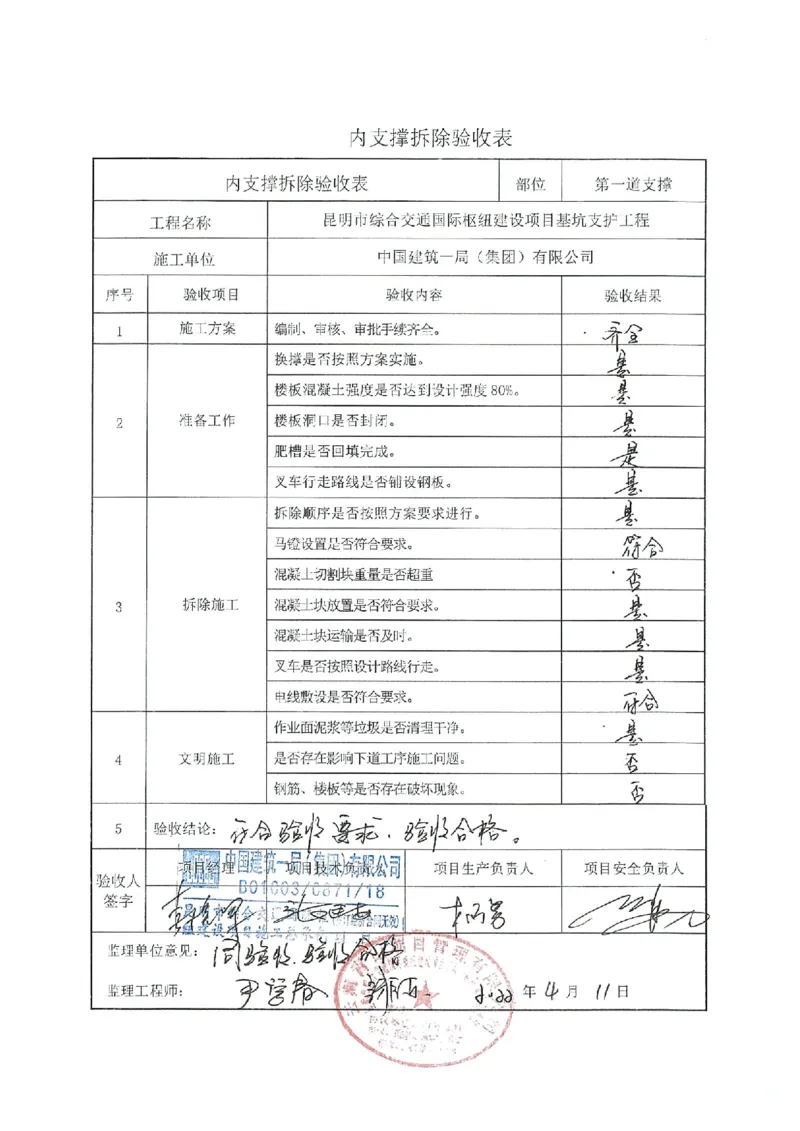 内支撑拆除验收表
内支撑拆除验收表 部位 第一道支撑
工程名称 昆明市综合交通国际枢纽建设项目基坑支护工程
施工单位 中国建筑一局（集团）有限公司
序号 验收项目 验收内容 验收结果
1 施工方案 编制、审核、审批手续齐全。 齐全
换撑是否按照方案实施。 是
楼板混凝土强度是否达到设计强度 80%。 是
2 准备工作 楼板洞口是否封闭。 是
肥槽是否回填完成。 是
叉车行走路线是否铺设钢板。 是
拆除顺序是否按照方案要求进行。 是
马镫设置是否符合要求。 符合
混凝土切割块重量是否超重 否
3 拆除施工 混凝土块放置是否符合要求。 是
混凝土块运输是否及时。 是
叉车是否按照设计路线行走。 是
电线敷设是否符合要求。 符合
作业面泥浆等垃圾是否清理干净。 是
4 文明施工 是否存在影响下道工序施工问题。 否
钢筋、楼板等是否存在破坏现象。 否
5 验收结论：符合验收要求，验收合格。
验收人签字 项目经理 项目技术负责人 项目生产负责人 项目安全负责人
中国建筑一局（集团）有限公司
B01003/0871/18
监理单位意见：同意验收，验收合格
监理工程师： 2022 年 4 月 11 日